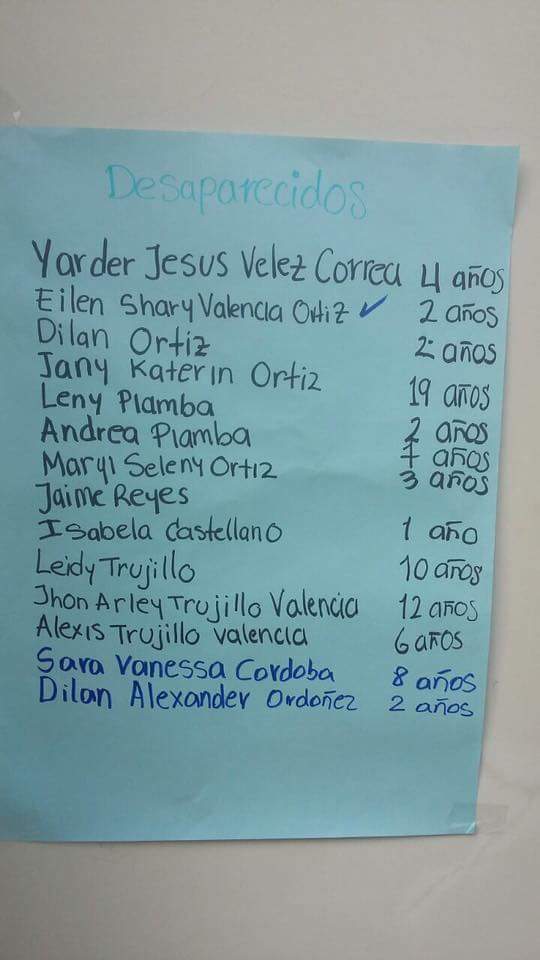 Desaparecidos
Yarder Jesus Velez Correa 4 años
Eilen Shary Valencia Ortiz ✓ 2 años
Dilan Ortiz 2 años
Jany Katerin Ortiz 19 años
Leny Plamba 2 años
Andrea Plamba 7 años
Maryi Seleny Ortiz 3 años
Jaime Reyes
Isabela Castellano 1 año
Leidy Trujillo 10 años
Jhon Arley Trujillo Valencia 12 años
Alexis Trujillo Valencia 6 años
Sara Vanessa Cordoba 8 años
Dilan Alexander Ordoñez 2 años